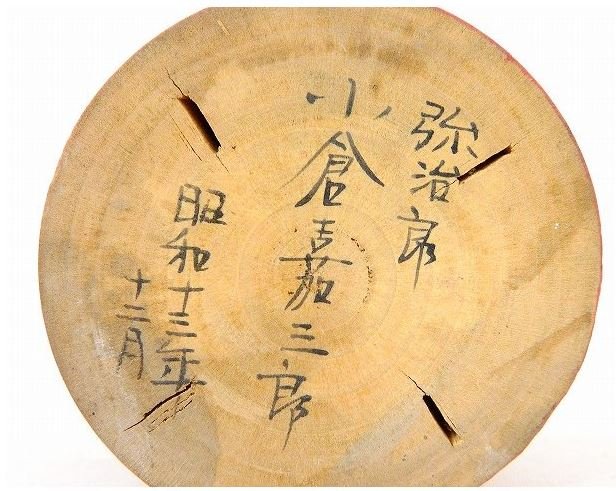 弥治郎
小倉嘉三郎
昭和十三年
十二月